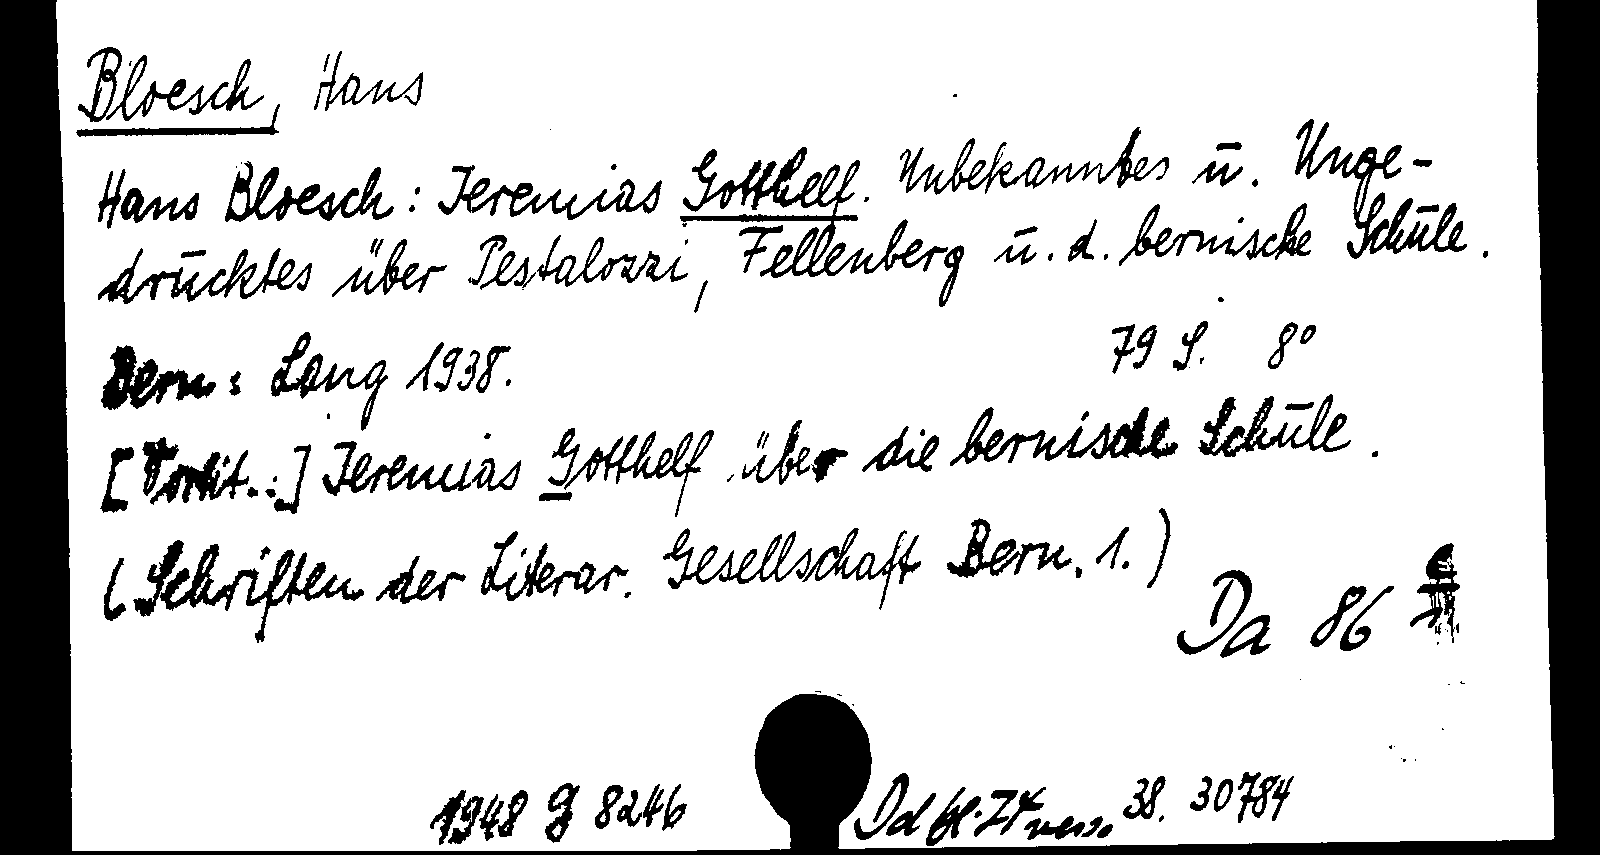 Bloesch, Hans
Hans Bloesch: Jeremias Gotthelf. Unbekanntes u. Unge-
drucktes über Pestalozzi, Fellenberg u. d. bernische Schule.
Bern: Lang 1938. 79 S. 8°
[Vortit.:] Jeremias Gotthelf über die bernische Schule.
(Schriften der Literar. Gesellschaft Bern. 1.)
Da 86
1948 g 8246 Dd 38. 30784